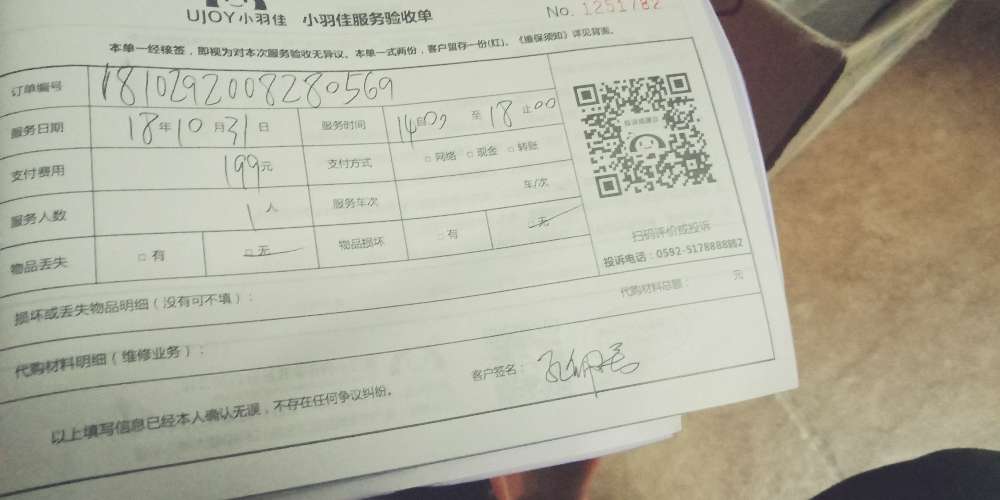 UJOY小羽佳 小羽佳服务验收单 No. 1251782
本单一经接签，即视为对本次服务验收无异议。本单一式两份，客户留存一份(红)。《维保须知》详见背面。
订单编号 1810292008280569
服务日期 18年10月31日 服务时间 14自00 至 18止00
支付费用 199元 支付方式 □ 网络 □ 现金 □ 转账
服务人数 1人 服务车次 车/次
物品丢失 □ 有 □ 无 物品损坏 □ 有 □ 无
扫码评价或投诉
投诉电话：0592-5178888转2
损坏或丢失物品明细（没有可不填）：
代购材料明细（维修业务）： 代购材料总额： 元
客户签名：
以上填写信息已经本人确认无误，不存在任何争议纠纷。